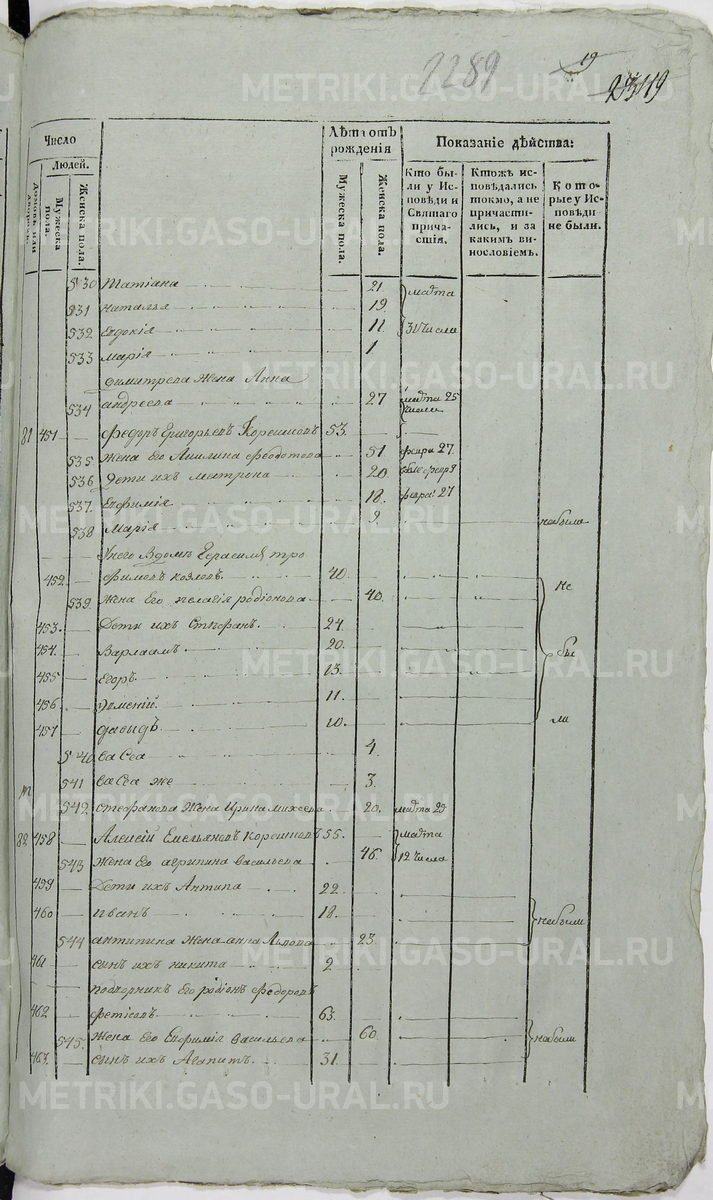 2289
19
Число
Людей.
Домовъ или дворовъ.
Мужеска пола.
Женска пола.
Лѣта отъ рожденія
Мужеска пола.
Женска пола.
Показаніе дѣйства:
Кто бы-
ли у Ис-
повѣди и
Святаго
прича-
стія.
Ктожъ ис-
повѣдались
токмо, а не
причасти-
лись, и за
какимъ ви-
нословіемъ.
Кото-
рые у Ис-
повѣди
не были.
530 Татіана 21 марта
531 Наталья 19
532 Евдокія 11 31 числа
533 Марія 1
Димитрева жена Анна
534 андреева 27 марта 25 числа
81 451 Федоръ Григорьевъ Корешковъ 53
535 жена его Акилина Федотова 51 февра 27.
536 Дети ихъ матрона 20
537. Евфимія 18. февра: 27
538 Марія 9 небыла
Унего вдомѣ Герасимъ тро
452 фимовъ козловъ. 40
539. жена Его пелагія родіонова 40 не
453. Дети ихъ Стефанъ. 24.
454. Варлаамъ 20. бы
455 Егоръ. 13.
456. Доментій. 11.
457 давыдъ 10. ли
540 васса 4
541 васса же 3.
542 стефанова жена Ирина михеева 20. марта 29
82 458 Алексій Емельяновъ Корешковъ 55. марта
543 жена Его агрипина васильева 46. 12 числа
459 Дети ихъ Антипа 22
460 иванъ 18. небыли
544 антипина жена анна Львова 23.
461 сынъ ихъ никита 2
подворникъ Его родіонъ Федоровъ
462 фетисовъ 63.
545. жена Его Евфимія васильева 60 небыли
463. сынъ ихъ Агапитъ 31.
METRIKI.GASO-URAL.RU